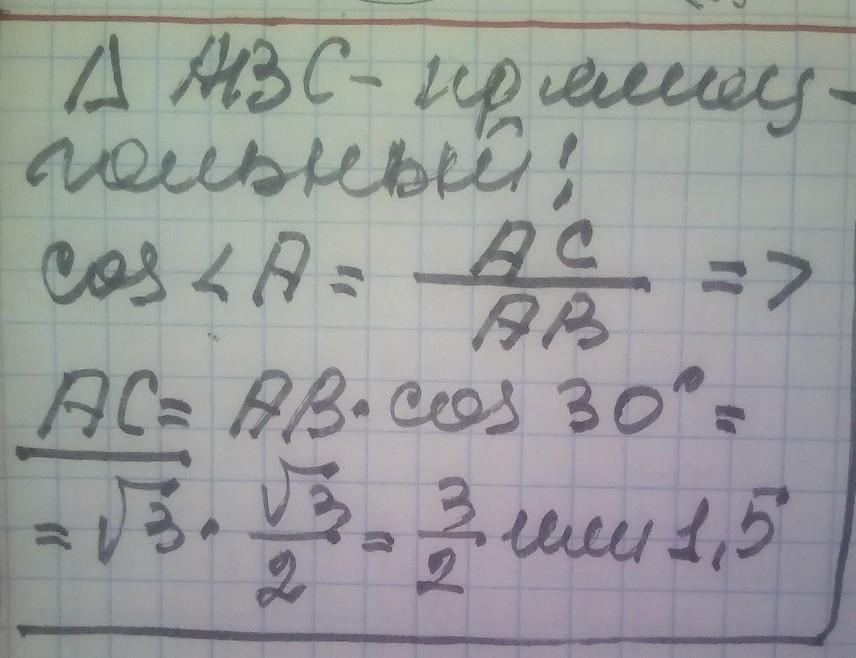 Δ ABC - прямоу-
гольный:
cos < A = AC / AB =>
AC = AB · cos 30° =
= √3 · √3 / 2 = 3 / 2 или 1,5